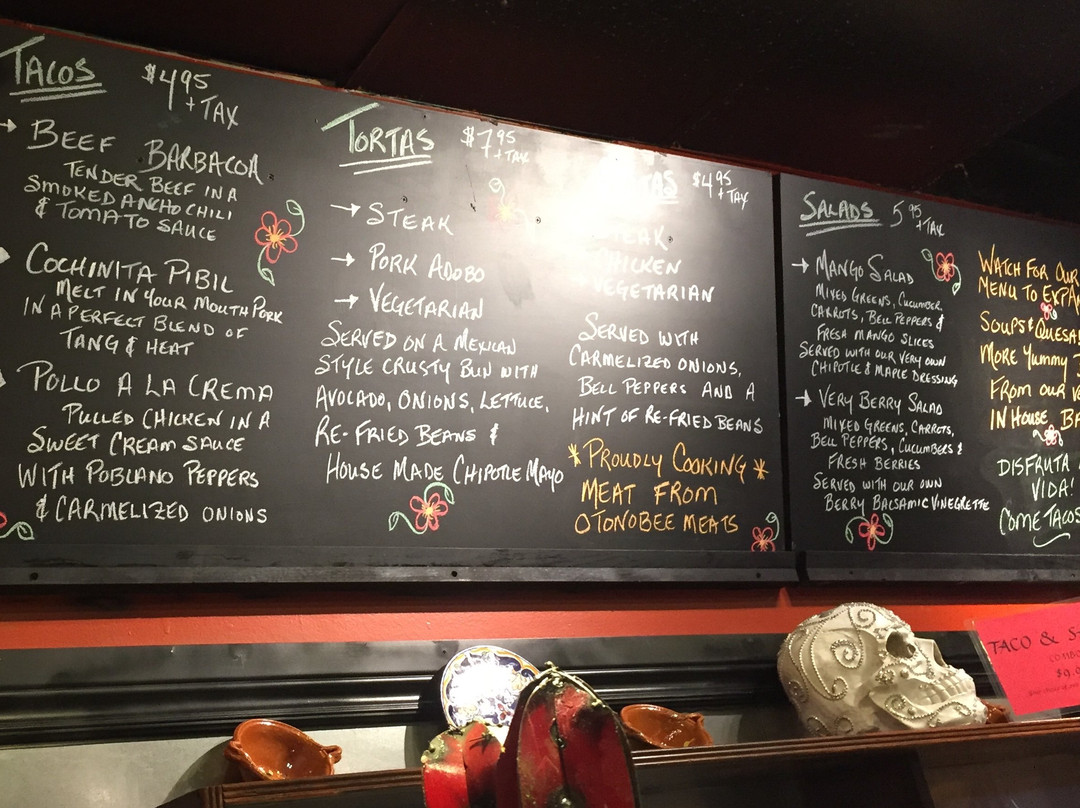 TACOS $4.95
+ TAX
→ BEEF BARBACOA
TENDER BEEF IN A
SMOKED ANCHO CHILI
& TOMATO SAUCE
COCHINITA PIBIL
MELT IN YOUR MOUTH PORK
IN A PERFECT BLEND OF
TANG & HEAT
POLLO A LA CREMA
PULLED CHICKEN IN A
SWEET CREAM SAUCE
WITH POBLANO PEPPERS
& CARMELIZED ONIONS
TORTAS $7.95
+ TAX
→ STEAK
→ PORK ADOBO
→ VEGETARIAN
SERVED ON A MEXICAN
STYLE CRUSTY BUN WITH
AVOCADO, ONIONS, LETTUCE,
RE-FRIED BEANS &
HOUSE MADE CHIPOTLE MAYO
$4.95
+ TAX
CHICKEN
VEGETARIAN
SERVED WITH
CARMELIZED ONIONS,
BELL PEPPERS AND A
HINT OF RE-FRIED BEANS
* PROUDLY COOKING *
MEAT FROM
OTONOBEE MEATS
SALADS 5.95
+ TAX
→ MANGO SALAD
MIXED GREENS, CUCUMBER,
CARROTS, BELL PEPPERS &
FRESH MANGO SLICES
SERVED WITH OUR VERY OWN
CHIPOTLE & MAPLE DRESSING
→ VERY BERRY SALAD
MIXED GREENS, CARROTS,
BELL PEPPERS, CUCUMBERS &
FRESH BERRIES
SERVED WITH OUR OWN
BERRY BALSAMIC VINEGRETTE
WATCH FOR OUR
MENU TO
SOUPS &
MORE YUMMY
FROM OUR
IN HOUSE
DISFRUTA
VIDA!
COME TACOS
TACO &